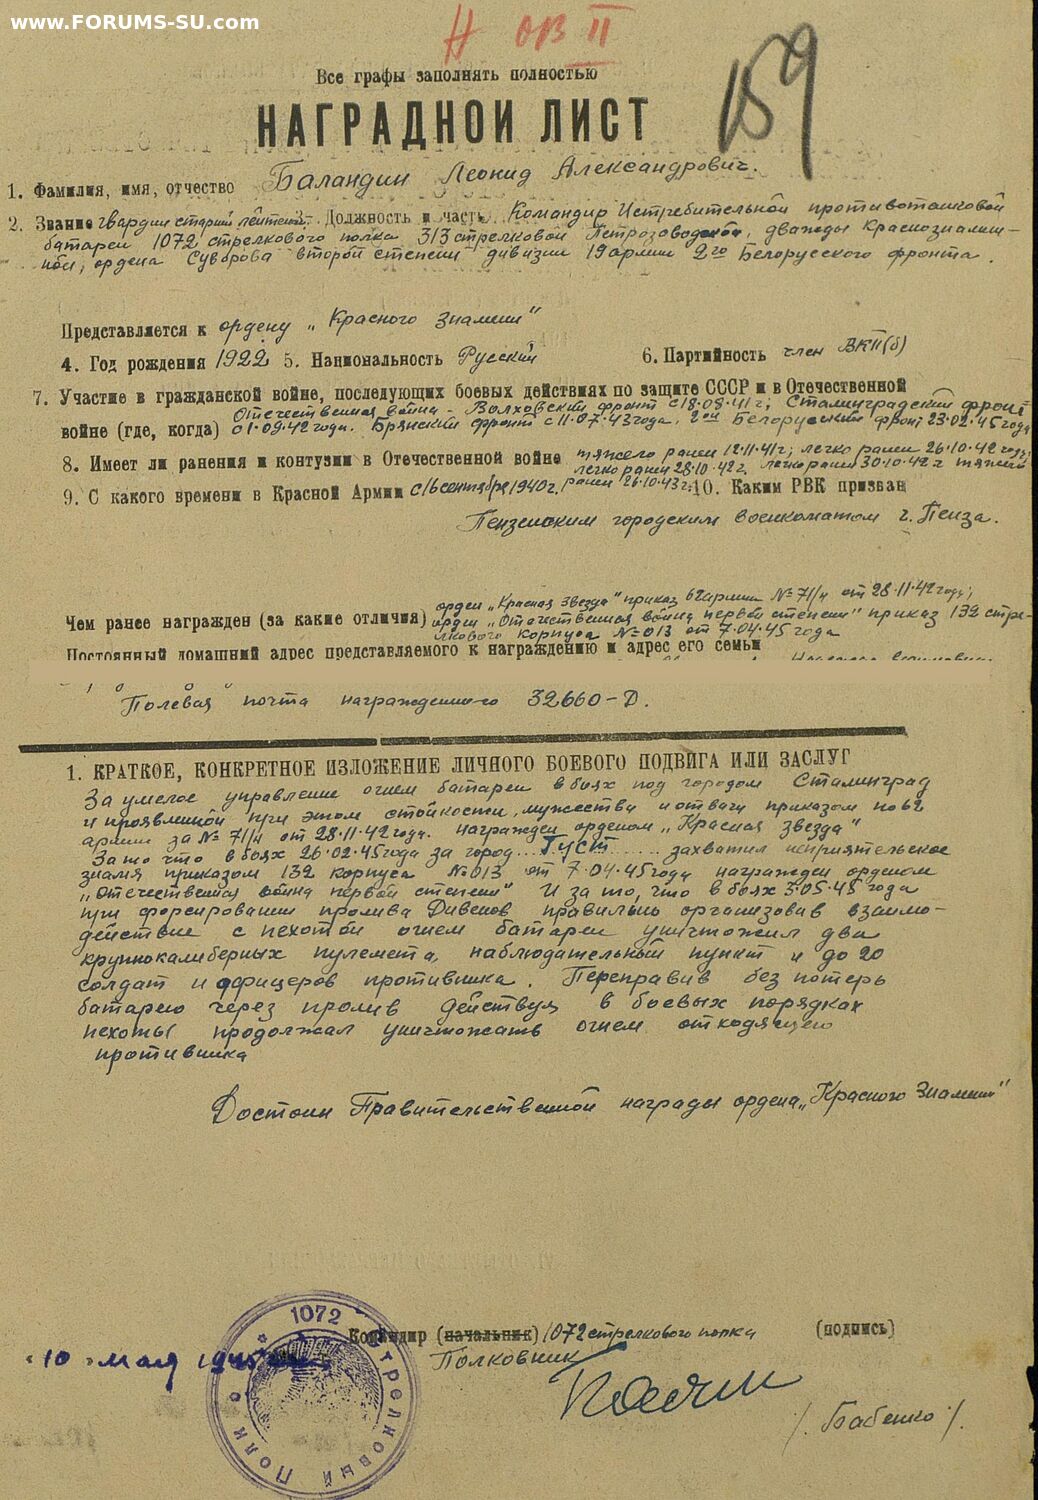 www.FORUMS-SU.com
Н ОВ II
159
Все графы заполнять полностью
НАГРАДНОЙ ЛИСТ
1. Фамилия, имя, отчество Баландин Леонид Александрович.
2. Звание гвардии старший лейтенант 3. Должность и часть Командир Истребительной противотанковой
батареи 1072 стрелкового полка 313 стрелковой Петрозаводской, дважды Краснознамен-
ной, ордена Суворова второй степени дивизии 19 армии 2го Белорусского фронта.
Представляется к ордену „Красного Знамени"
4. Год рождения 1922 5. Национальность Русский 6. Партийность член ВКП(б)
7. Участие в гражданской войне, последующих боевых действиях по защите СССР и в Отечественной
Отечественная война - Волховский фронт с 18.08.41г; Сталинградский фронт
войне (где, когда) с 1.09.42 года. Брянский фронт с 11.07.43 года. 2ой Белорусский фронт 23.02.45 года
8. Имеет ли ранения и контузии в Отечественной войне тяжело ранен 12.11.41г; легко ранен 26.10.42 года;
легко ранен 28.10.42г. легко ранен 30.10.42г тяжело
9. С какого времени в Красной Армии с 16 сентября 1940г. ранен 26.10.43г. 10. Каким РВК призван
Пензенским городским военкоматом г. Пенза.
орден „Красная Звезда" приказ 62 армии №71/н от 28.11.42 года;
Чем ранее награжден (за какие отличия) орден „Отечественная война первой степени" приказ 132 стре-
лкового корпуса №013 от 7.04.45 года
Постоянный домашний адрес представляемого к награждению и адрес его семьи
Полевая почта награжденного 32660-Д.
1. КРАТКОЕ, КОНКРЕТНОЕ ИЗЛОЖЕНИЕ ЛИЧНОГО БОЕВОГО ПОДВИГА ИЛИ ЗАСЛУГ
За умелое управление огнем батареи в боях под городом Сталинград
и проявленной при этом стойкости, мужества и отваги приказом по 62
армии за № 71/н от 28.11.42 года. награжден орденом „Красная Звезда"
За то что в боях 26.02.45 года за город Густ захватил неприятельское
знамя приказом 132 корпуса №013 от 7.04.45 года награжден орденом
„Отечественная война первой степени" И за то, что в боях 3.05.45 года
при форсировании пролива Дивенов правильно организовав взаимо-
действие с пехотой огнем батареи уничтожил два
крупнокалиберных пулемета, наблюдательный пункт и до 20
солдат и офицеров противника. Переправив без потерь
батарею через пролив действуя в боевых порядках
пехоты продолжал уничтожать огнем отходящего
противника
Достоин Правительственной награды ордена „Красного Знамени"
Командир (начальник) 1072 стрелкового полка (подпись)
Полковник
„10" мая 1945
/Бабенко/.
1072 Стрелковый Полк